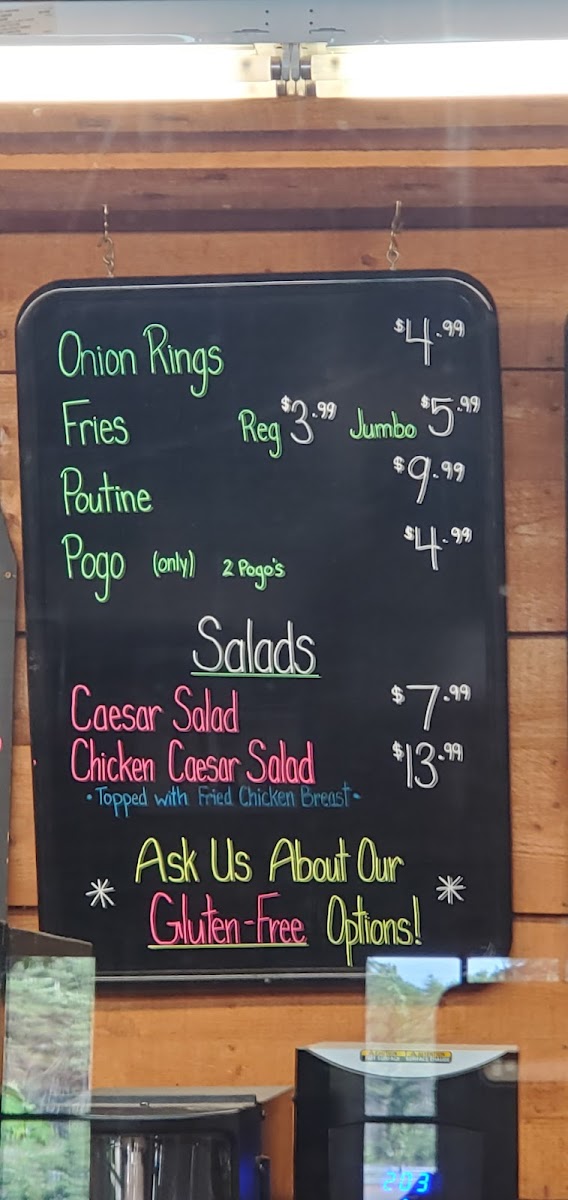 Onion Rings $4.99
Fries Reg $3.99 Jumbo $5.99
Poutine $9.99
Pogo (only) 2 Pogo's $4.99
Salads
Caesar Salad $7.99
Chicken Caesar Salad $13.99
•Topped with Fried Chicken Breast•
Ask Us About Our
* Gluten-Free Options! *
203